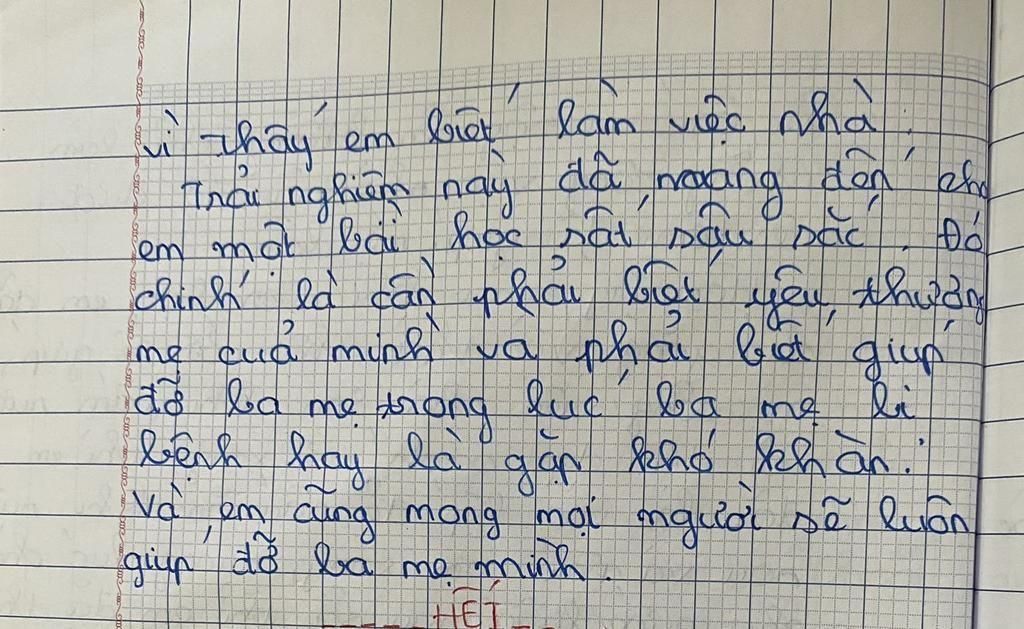 vì thấy em biết làm việc nhà.
Trải nghiệm này đã mang đến cho
em một bài học sâu sâu sắc. Đó
chính là cần phải biết yêu thương
mẹ của mình và phải biết giúp
đỡ ba mẹ trong lúc ba mẹ bị
bệnh hay là gặp khó khăn.
Và em cũng mong mọi người sẽ luôn
giúp đỡ ba mẹ mình.
HẾT